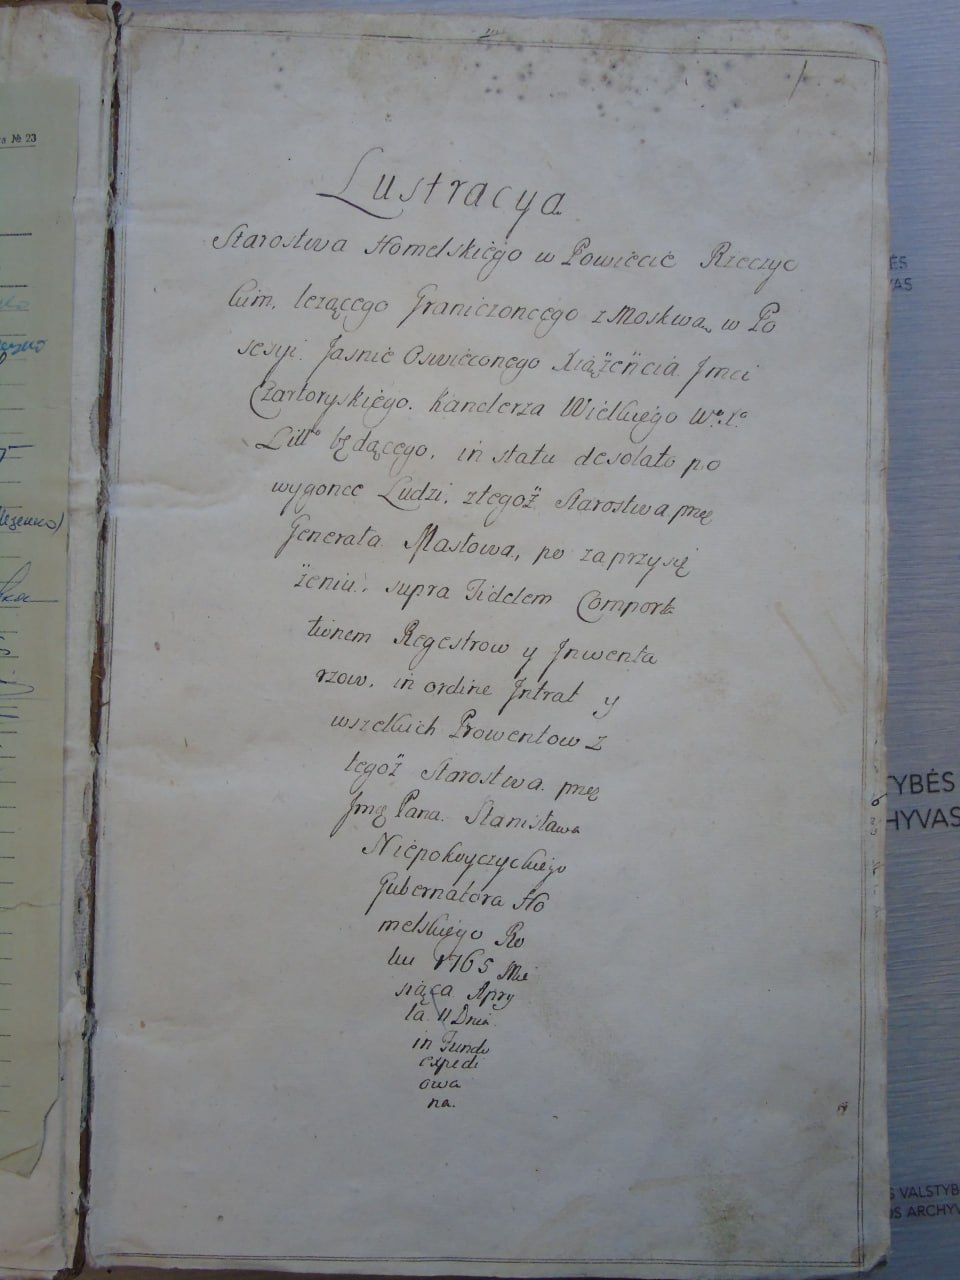 /
Lustracya
Starostwa Homelskiego w Powiecie Rzeczyc
kim, leżącego Graniczoncego z Moskwą, w Po
sesyi. Jasnie Oswieconego Xiążęncia Jmci
Czartoryskiego. Kanclerza Wielkiego W. X.
Litt° będącego, in statu desolato po
wygonce Ludzi, z tegoż Starostwa przez
Generała Masłowa, po zaprzysię
żeniu, supra Fidelem Comporta
tionem Regestrow y Jnwenta
rzow, in ordine Jntrat y
wszelkich Prowentow z
tegoż Starostwa. przez
Jmę Pana. Stanisława
Niepokoyczyckiego
Gubernatora Ho
melskiego Ro
ku 1765 Mie
siąca Apry
la 11 Dnia
in Fundo
expedi
owa
na.
№ 23
ĖS
VAS
TYBĖS
HYVAS
S VALSTYB
OS ARCHYV